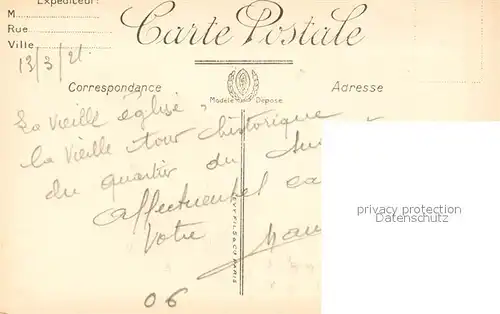 Expéditeur:
M
Rue
Ville
Carte Postale
13/3/21.
Correspondance
Adresse
Modèle Déposé
La vieille église,
la vieille tour historique
du quartier du
affectueusel
votre
privacy protection
Datenschutz
06